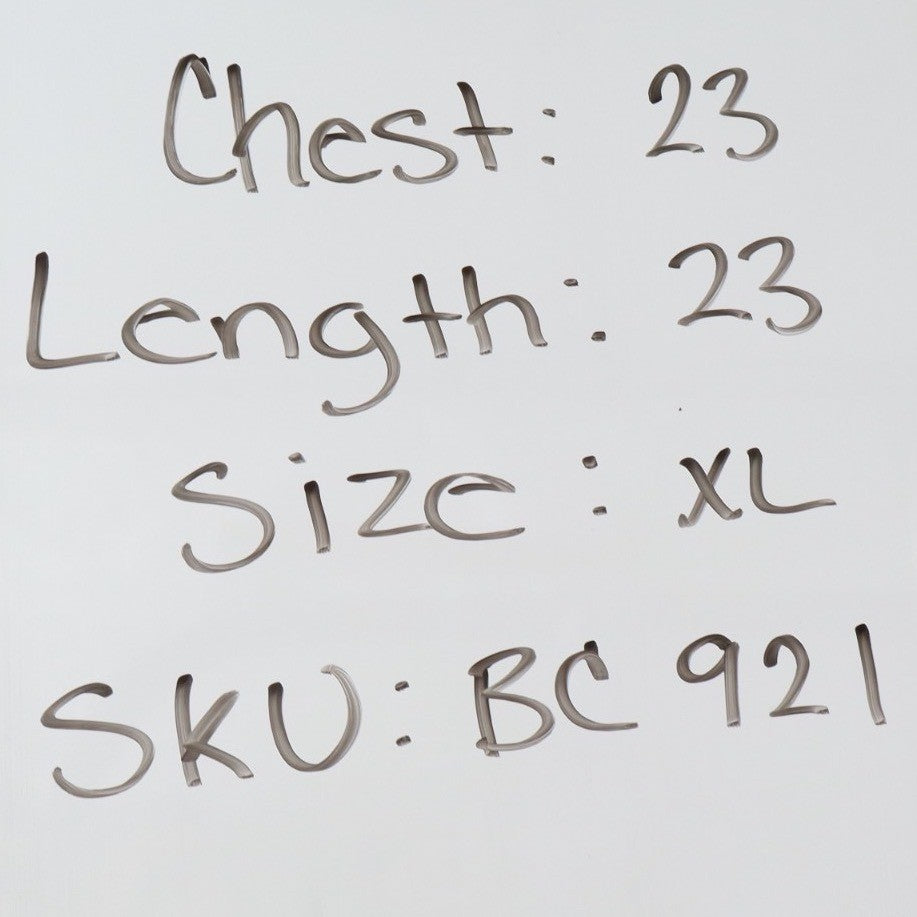 Chest: 23
Length: 23
Size: XL
SKU: BC 921